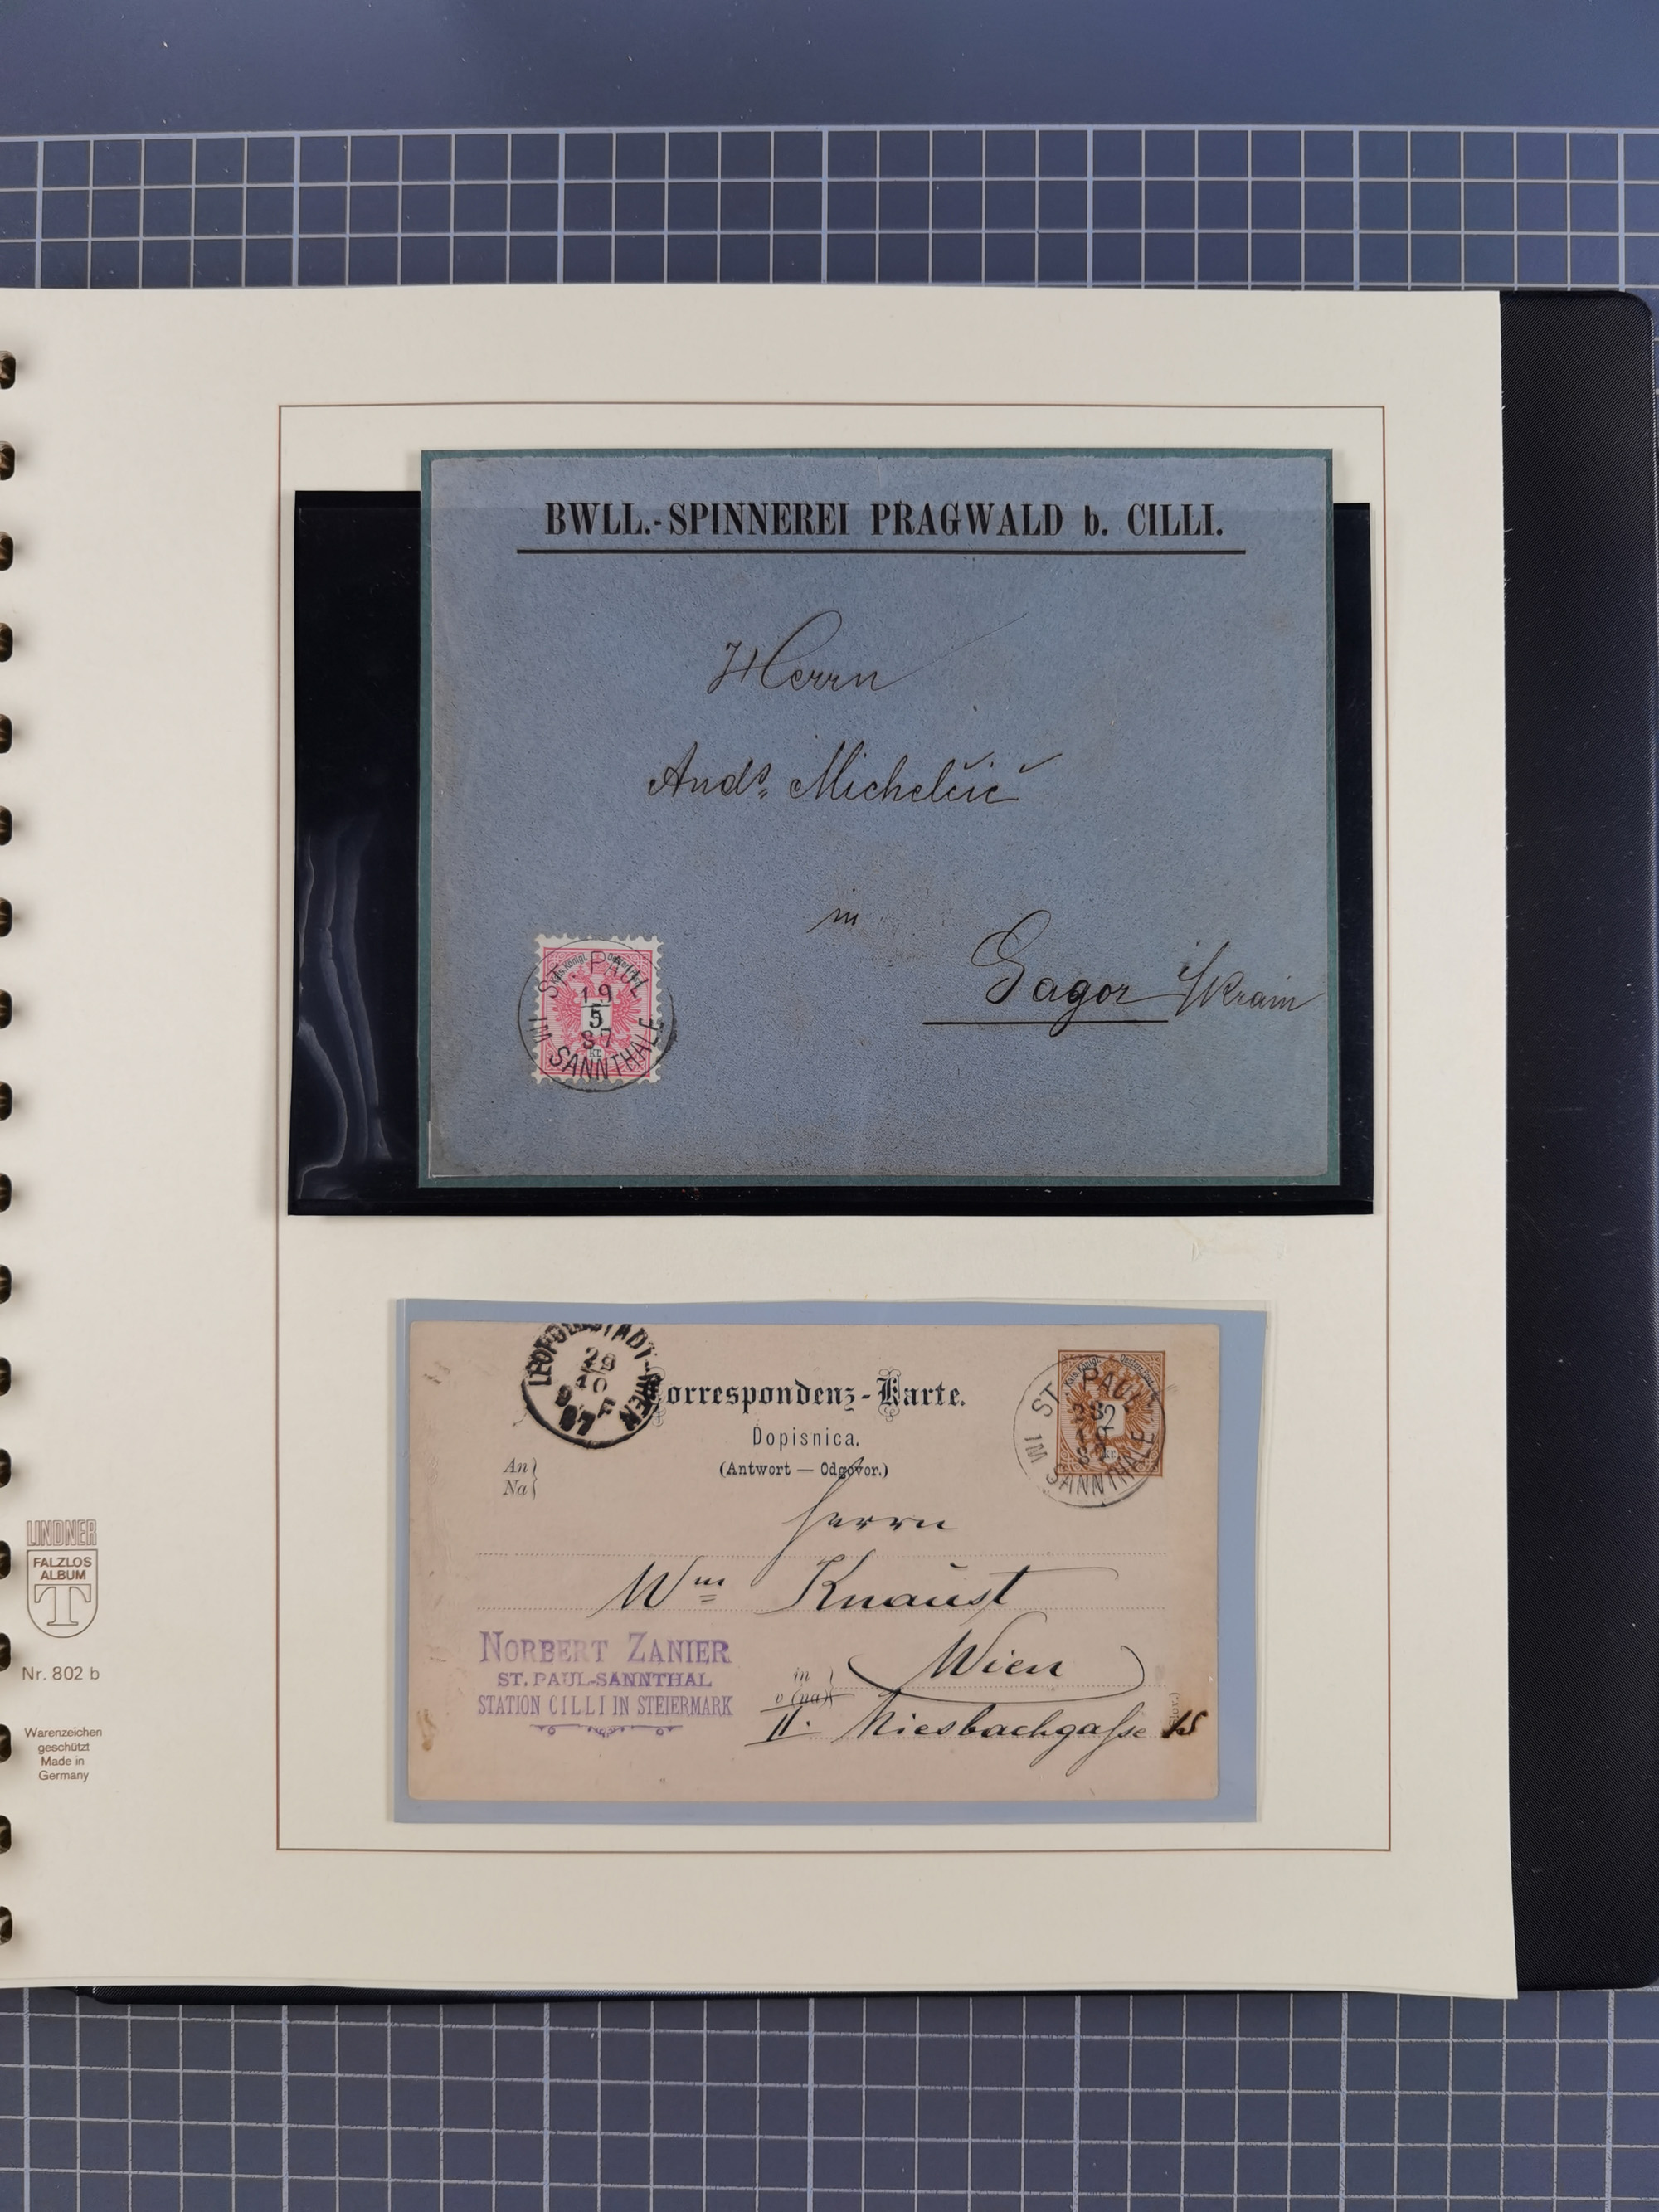 BWLL.-SPINNEREI PRAGWALD b. CILLI.
Herrn
Andr. Michelčič
in
Sagor i/Krain
Kais. Königl.
ST. PAUL
19
5
87
Kr.
IM SANNTHALE
LEOPOLDSTADT-WIEN
29
10
9 F
87
Correspondenz-Karte.
Dopisnica.
(Antwort — Odgovor.)
An
Na
Kais. Königl.
ST. PAUL
28
2
10
kr.
IM SANNTHALE
Herrn
Wm Knaust
in Wien
v (na)
II. Miesbachgasse 15
(Slov.)
NORBERT ZANIER
ST. PAUL-SANNTHAL
STATION CILLI IN STEIERMARK
LINDNER
FALZLOS
ALBUM
T
Nr. 802 b
Warenzeichen
geschützt
Made in
Germany